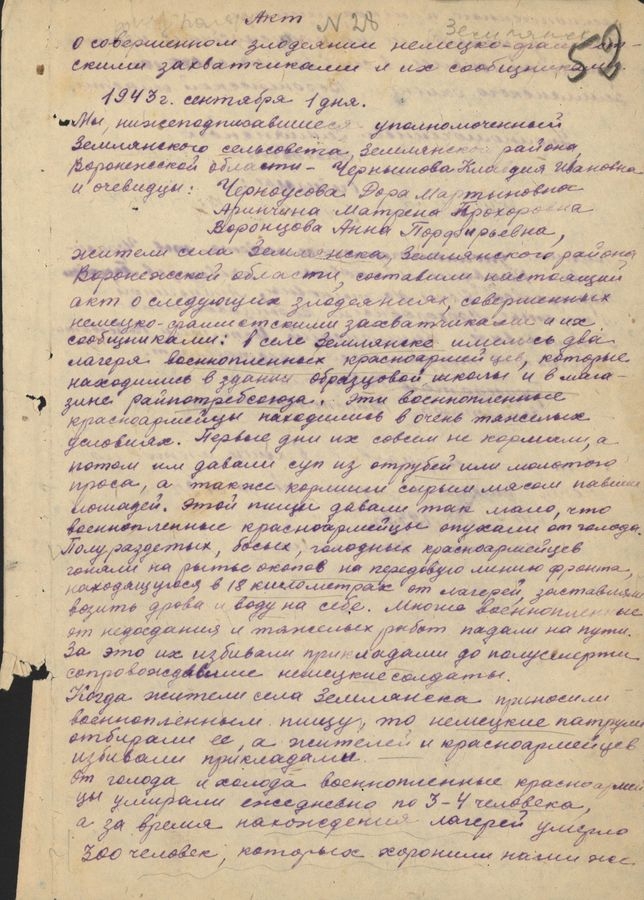 Акт
N 28
Землянск
52
о совершенном злодеянии немецко-фашист-
скими захватчиками и их сообщниками.
1943 г. сентября 1 дня.
Мы, нижеподписавшиеся уполномоченный
Землянского сельсовета, Землянского района,
Воронежской области – Чернышова Клавдия Ивановна
и очевидцы: Черноусова Дора Мартыновна
Аринчина Матрена Прохоровна
Воронцова Анна Порфирьевна,
жители села Землянска, Землянского района
Воронежской области, составили настоящий
акт о следующих злодеяниях, совершенных
немецко-фашистскими захватчиками и их
сообщниками: В селе Землянске имелись два
лагеря военнопленных красноармейцев, которые
находились в здании образцовой школы и в мага-
зине райпотребсоюза. Эти военнопленные
красноармейцы находились в очень тяжелых
условиях. Первые дни их совсем не кормили, а
потом им давали суп из отрубей или молотого
проса, а также кормили сырым мясом павших
лошадей. Этой пищи давали так мало, что
военнопленные красноармейцы опухали от голода.
Полураздетых, босых, голодных красноармейцев
гоняли на рытье окопов на передовую линию фронта,
находящуюся в 18 километрах от лагерей, заставляли
возить дрова и воду на себе. Многие военнопленные
от недоедания и тяжелых работ падали на пути.
За это их избивали прикладами до полусмерти
сопровождавшие немецкие солдаты.
Когда жители села Землянска приносили
военнопленным пищу, то немецкие патрули
отбирали ее, а жителей и красноармейцев
избивали прикладами.
От голода и холода военнопленные красноармей
цы умирали ежедневно по 3-4 человека,
а за время нахождения лагерей умерло
300 человек, которых хоронили наши же